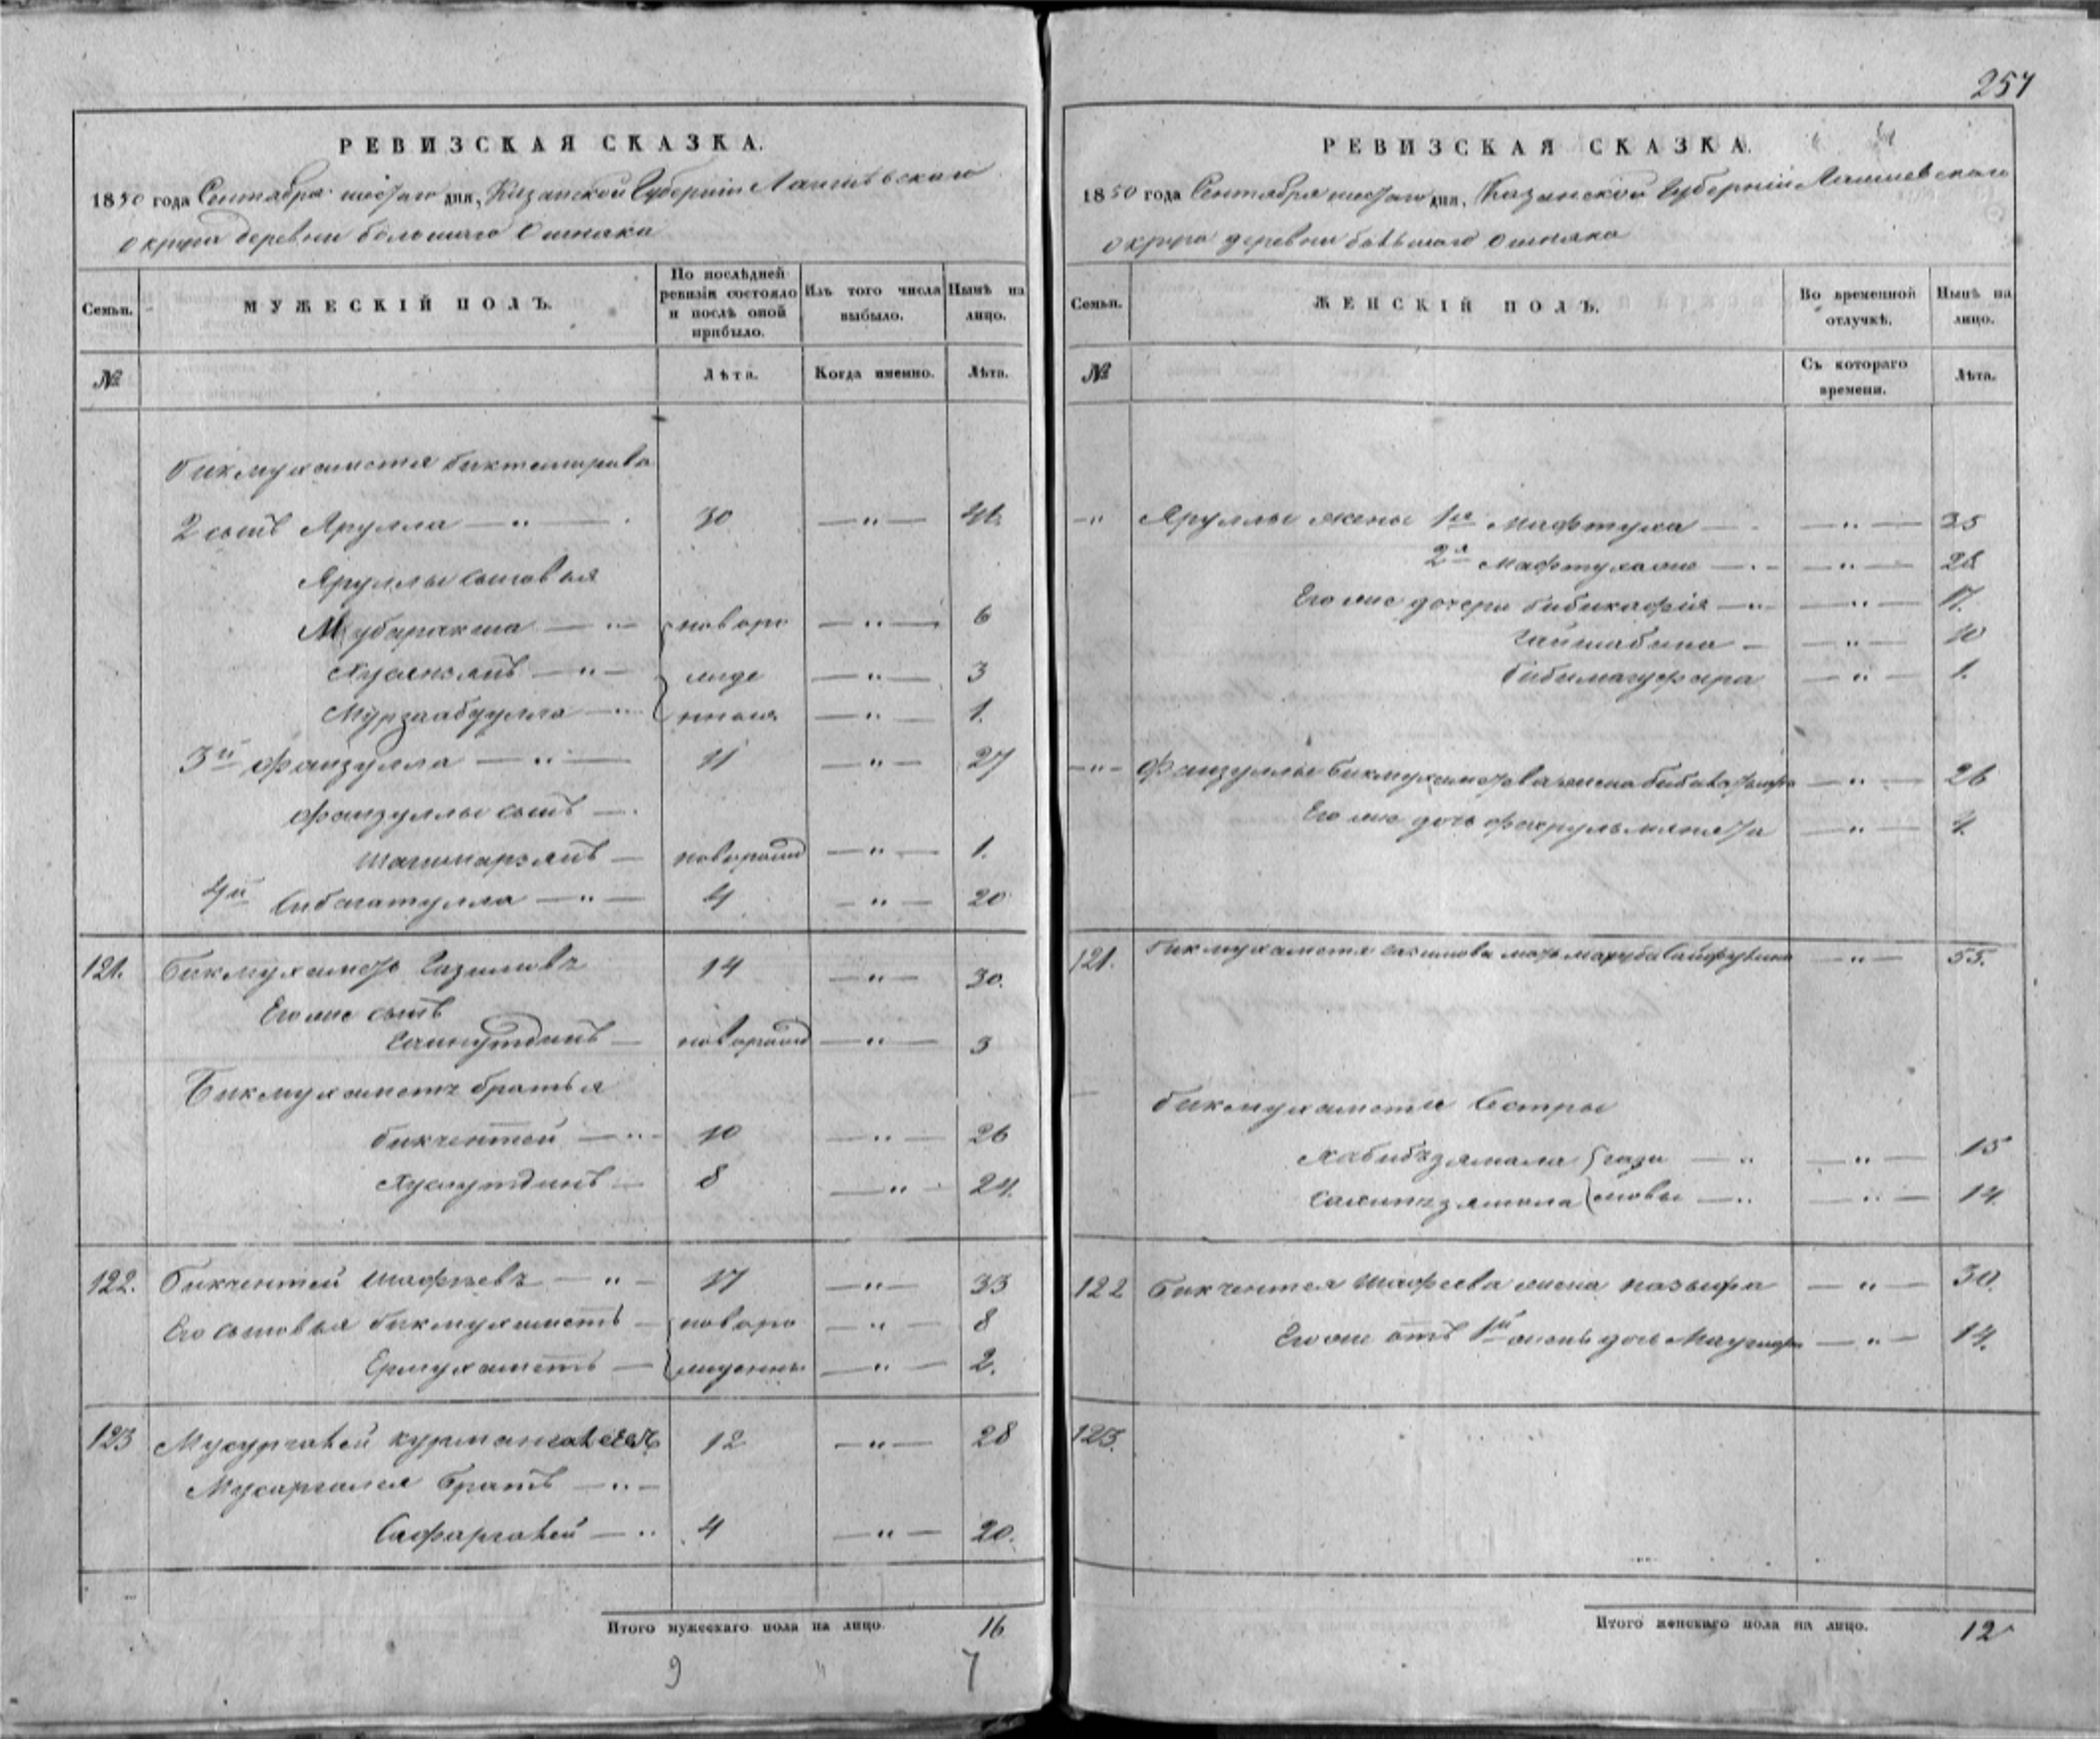 257
РЕВИЗСКАЯ СКАЗКА.
1850 года Сентября шестаго дня, Казанской Губернии Лаишевскаго
округа деревни большаго Ошняка
Семьи.
МУЖЕСКІЙ ПОЛЪ.
По послѣдней ревизіи состояло и послѣ оной прибыло.
Изъ того числа выбыло.
Нынѣ на лицо.
№
Лѣта.
Когда именно.
Лѣта.
Бикмухаметя Биктемирова
2 сынъ Ярулла — " — 30 — " —
Яруллы сыновья
Мубаракша — " — новоро — " — 6
Хусянзянъ — " — жде — " — 3
Мурзаабдулла — " нныя — " — 1.
3й Фаизулла — " — 11 — " — 27
Фаизуллы сынъ —
Шагимарзянъ — новорожд — " — 1.
4й Сибагатулла — " — 4 — " — 20
121. Бикмухаметъ Газимовъ 14 — " — 30.
Его же сынъ
Гайнутдинъ — новорожд — " — 3
Бикмухаметя братья
Бикчентей — " — 10 — " — 26
Хуснутдинъ — 8 — " — 24.
122. Бикчентей Шафѣевъ — " — 17 — " — 33
Его сыновья Бикмухаметъ — новоро — " — 8
Ермухаметъ — жденны — " — 2.
123 Мухургалей Курмангалеевъ 12 — " — 28
Мухаргалея братъ — " —
Сафаргалей — " 4 — " — 20.
Итого мужескаго пола на лицо 16
9 " 7
РЕВИЗСКАЯ СКАЗКА.
1850 года Сентября шестаго дня, Казанской Губерніи Лаишевскаго
округа деревни большаго Ошняка
Семьи.
ЖЕНСКІЙ ПОЛЪ.
Во временной отлучкѣ.
Нынѣ на лицо.
№
Съ котораго времени.
Лѣта.
— " Яруллы жены 1я Мафтуха — — " — 35
2я — " — 28
Его же дочери Бибикафія — " — " — 17.
Гайшабика — — " — 10
Бибимагуфара — " — 1.
— " — Фаизуллы Бикмухаметева жена — " — 26
Его же дочь — " — 4.
121. Бикмухаметя Газимова мать — " — 55.
Бикмухаметя Сестры
Хабибзямала Гази — " — " — 15
мовы — " — " — 14.
122 Бикчентея Шафеева жена Назыфа — " — 30.
Его же отъ 1й жены дочь — " — 14.
123.
Итого женскаго пола на лицо. 12